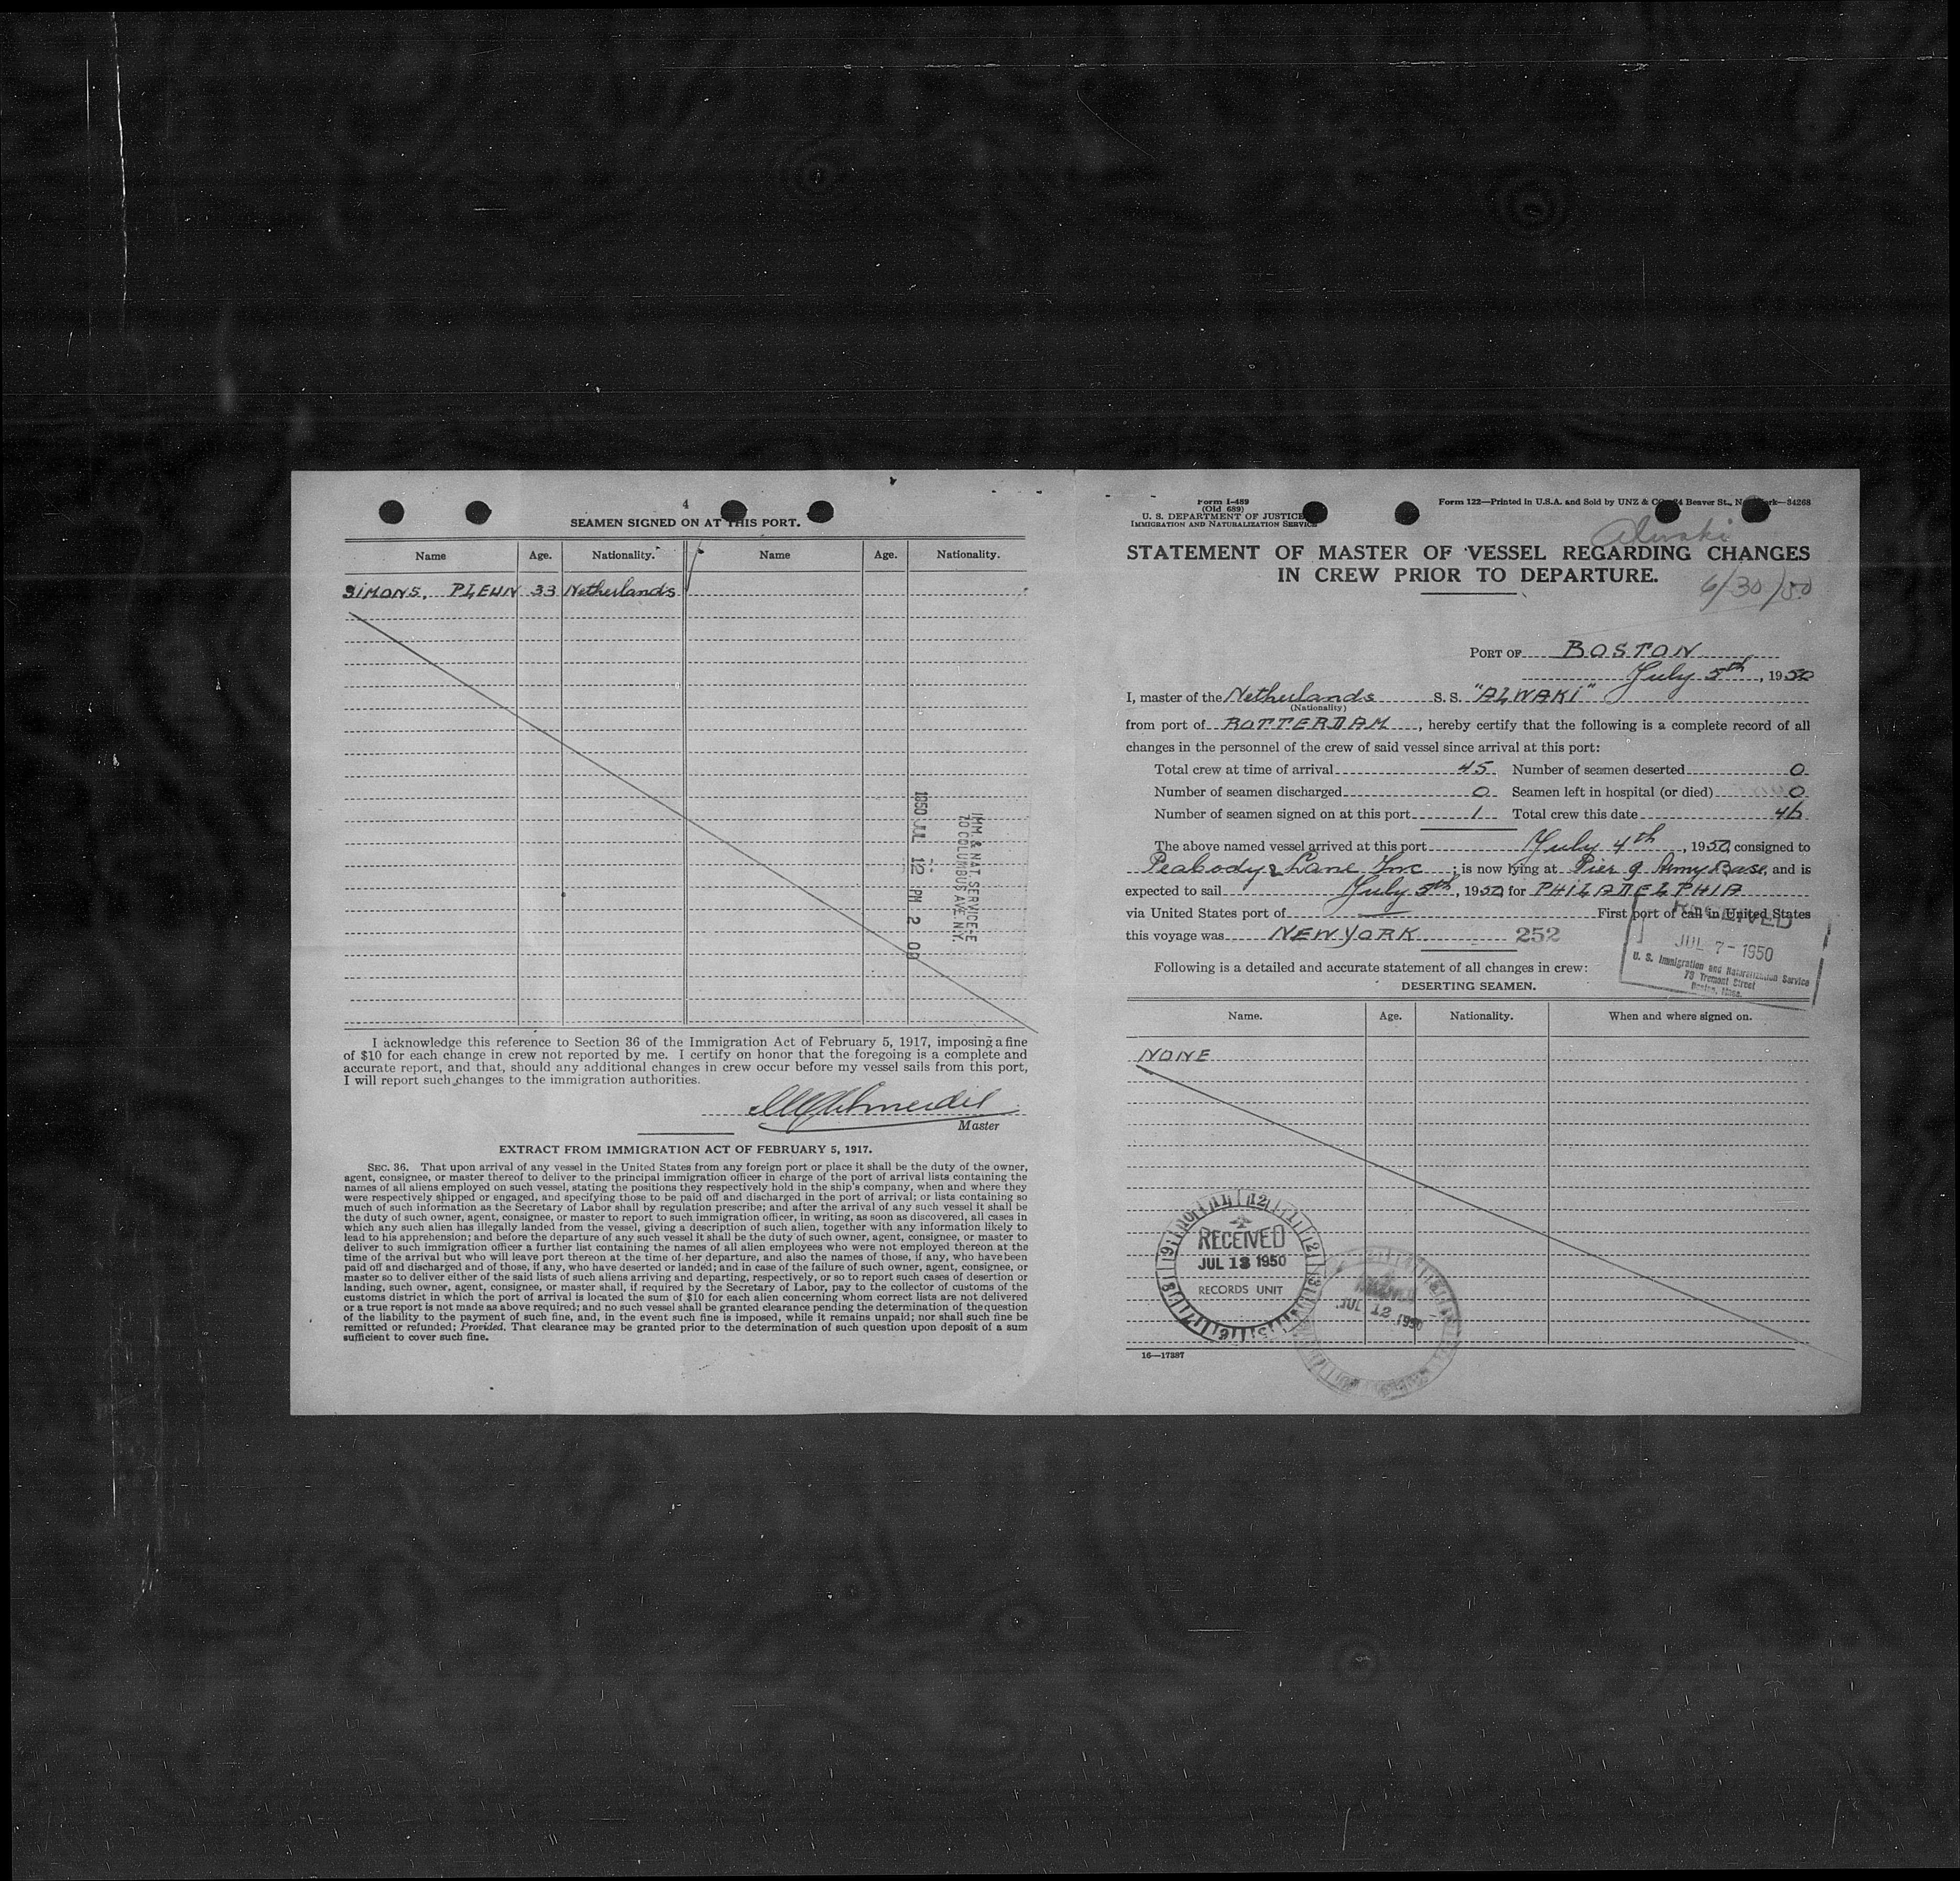 4
SEAMEN SIGNED ON AT THIS PORT.
Name Age. Nationality. Name Age. Nationality.
SIMONS, PLEUN 33 Netherlands
IMM. & NAT. SERVICE-E
70 COLUMBUS AVE. N.Y.
1950 JUL 12 PM 2 00
I acknowledge this reference to Section 36 of the Immigration Act of February 5, 1917, imposing a fine
of $10 for each change in crew not reported by me. I certify on honor that the foregoing is a complete and
accurate report, and that, should any additional changes in crew occur before my vessel sails from this port,
I will report such changes to the immigration authorities.
Master
EXTRACT FROM IMMIGRATION ACT OF FEBRUARY 5, 1917.
SEC. 36. That upon arrival of any vessel in the United States from any foreign port or place it shall be the duty of the owner,
agent, consignee, or master thereof to deliver to the principal immigration officer in charge of the port of arrival lists containing the
names of all aliens employed on such vessel, stating the positions they respectively hold in the ship's company, when and where they
were respectively shipped or engaged, and specifying those to be paid off and discharged in the port of arrival; or lists containing so
much of such information as the Secretary of Labor shall by regulation prescribe; and after the arrival of any such vessel it shall be
the duty of such owner, agent, consignee, or master to report to such immigration officer, in writing, as soon as discovered, all cases in
which any such alien has illegally landed from the vessel, giving a description of such alien, together with any information likely to
lead to his apprehension; and before the departure of any such vessel it shall be the duty of such owner, agent, consignee, or master to
deliver to such immigration officer a further list containing the names of all alien employees who were not employed thereon at the
time of the arrival but who will leave port thereon at the time of her departure, and also the names of those, if any, who have been
paid off and discharged and of those, if any, who have deserted or landed; and in case of the failure of such owner, agent, consignee, or
master so to deliver either of the said lists of such aliens arriving and departing, respectively, or so to report such cases of desertion or
landing, such owner, agent, consignee, or master shall, if required by the Secretary of Labor, pay to the collector of customs of the
customs district in which the port of arrival is located the sum of $10 for each alien concerning whom correct lists are not delivered
or a true report is not made as above required; and no such vessel shall be granted clearance pending the determination of the question
of the liability to the payment of such fine, and, in the event such fine is imposed, while it remains unpaid; nor shall such fine be
remitted or refunded; Provided, That clearance may be granted prior to the determination of such question upon deposit of a sum
sufficient to cover such fine.
Form I-489
(Old 689)
U. S. DEPARTMENT OF JUSTICE
IMMIGRATION AND NATURALIZATION SERVICE
Form 122—Printed in U.S.A. and Sold by UNZ & CO., 24 Beaver St., New York—34268
Alwaki
STATEMENT OF MASTER OF VESSEL REGARDING CHANGES
IN CREW PRIOR TO DEPARTURE.
6/30/50
PORT OF BOSTON
July 5th, 1950
I, master of the Netherlands S. S. "ALWAKI"
(Nationality)
from port of ROTTERDAM, hereby certify that the following is a complete record of all
changes in the personnel of the crew of said vessel since arrival at this port:
Total crew at time of arrival 45 Number of seamen deserted 0
Number of seamen discharged 0 Seamen left in hospital (or died) 0
Number of seamen signed on at this port 1 Total crew this date 46
The above named vessel arrived at this port July 4th, 1950, consigned to
Peabody & Lane Inc; is now lying at Pier 9 Army Base, and is
expected to sail July 5th, 1950 for PHILADELPHIA
via United States port of — First port of call in United States
this voyage was NEW YORK 252
RECEIVED
JUL 7 - 1950
U. S. Immigration and Naturalization Service
73 Tremont Street
Boston, Mass.
Following is a detailed and accurate statement of all changes in crew:
DESERTING SEAMEN.
Name. Age. Nationality. When and where signed on.
NONE
RECEIVED
JUL 13 1950
RECORDS UNIT
JUL 12 1950
16—17387